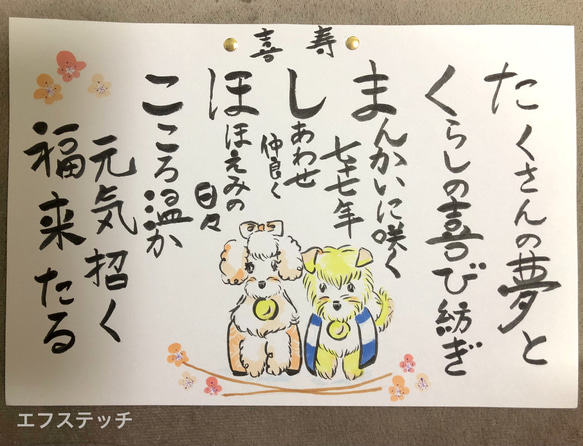 喜寿
たくさんの夢と
くらしの喜び紡ぎ
まんかいに咲く
七十七年
しあわせ
仲良く
ほほえみの
日々
こころ温か
元気招く
福来たる
エフステッチ